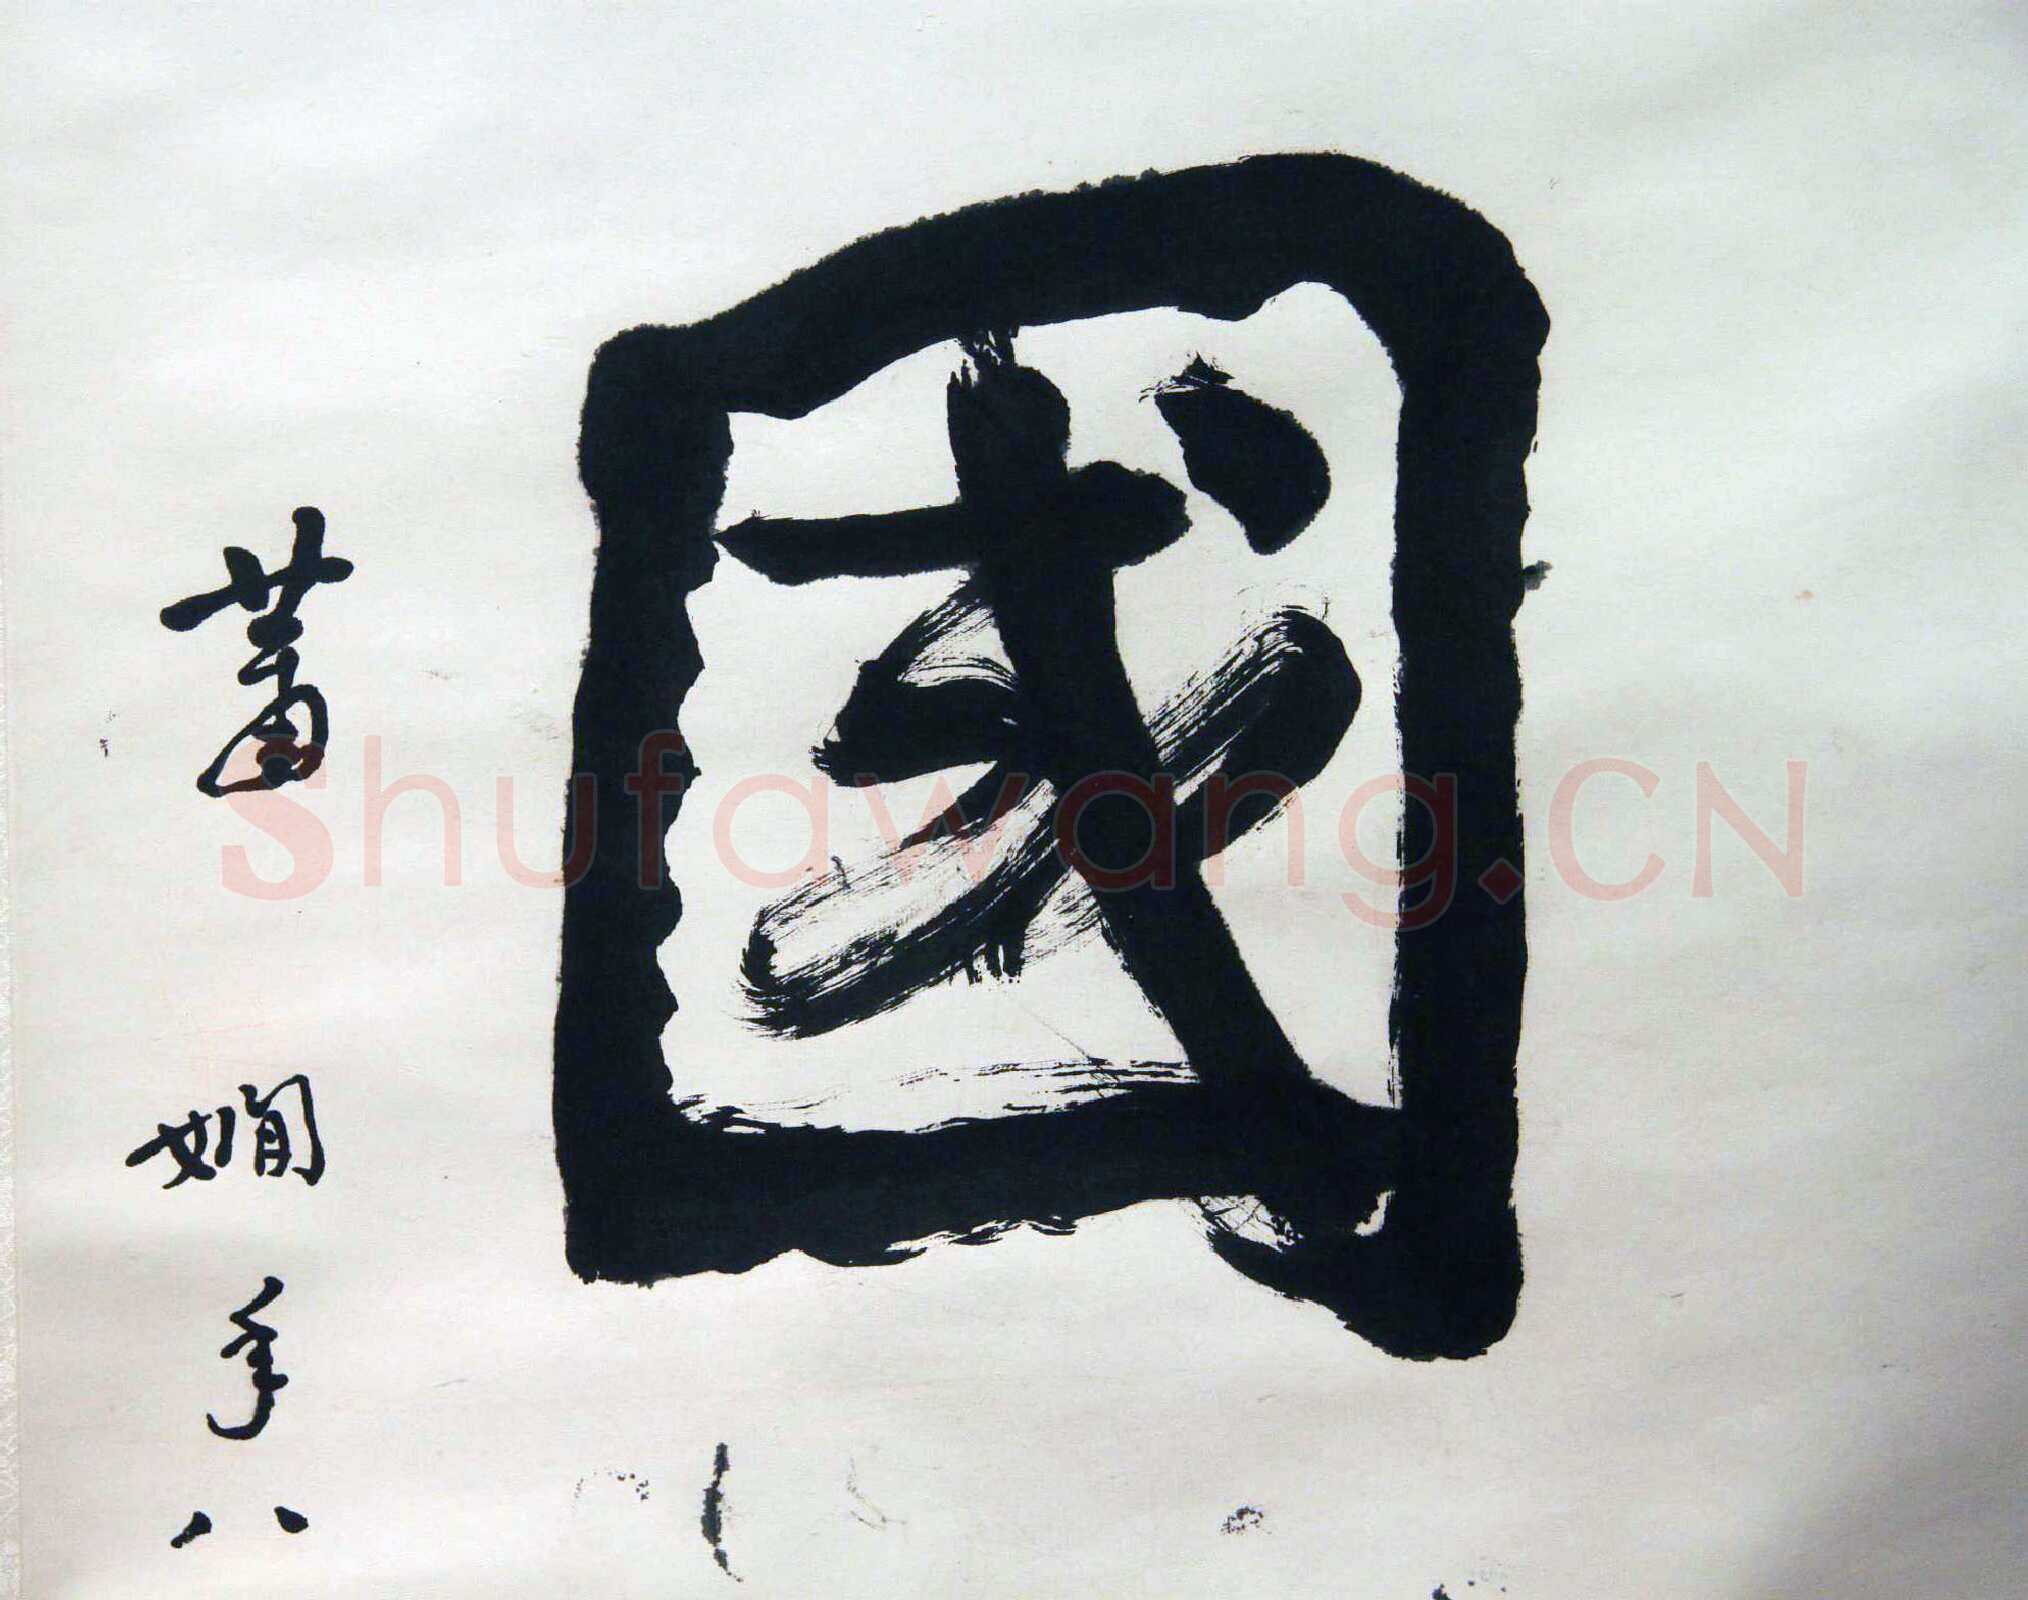 國
蕭嫻年八
Shufawang.CN